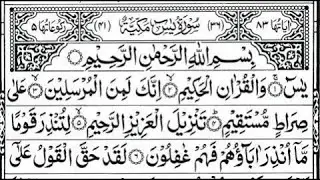 اٰيَاتُهَا ٨٣ (٣٦) سُوْرَةُ يٰسٓ مَكِّيَّةٌ (٤١) رُكُوْعَاتُهَا ٥
بِسْمِ اللهِ الرَّحْمٰنِ الرَّحِيْمِ
يٰسٓ ۚ﴿١﴾ وَالْقُرْاٰنِ الْحَكِيْمِ ۙ﴿٢﴾ اِنَّكَ لَمِنَ الْمُرْسَلِيْنَ ۙ﴿٣﴾ عَلٰى
صِرَاطٍ مُّسْتَقِيْمٍ ؕ﴿٤﴾ تَنْزِيْلَ الْعَزِيْزِ الرَّحِيْمِ ۙ﴿٥﴾ لِتُنْذِرَ قَوْمًا
مَّاۤ اُنْذِرَ اٰبَآؤُهُمْ فَهُمْ غٰفِلُوْنَ ﴿٦﴾ لَقَدْ حَقَّ الْقَوْلُ عَلٰٓى